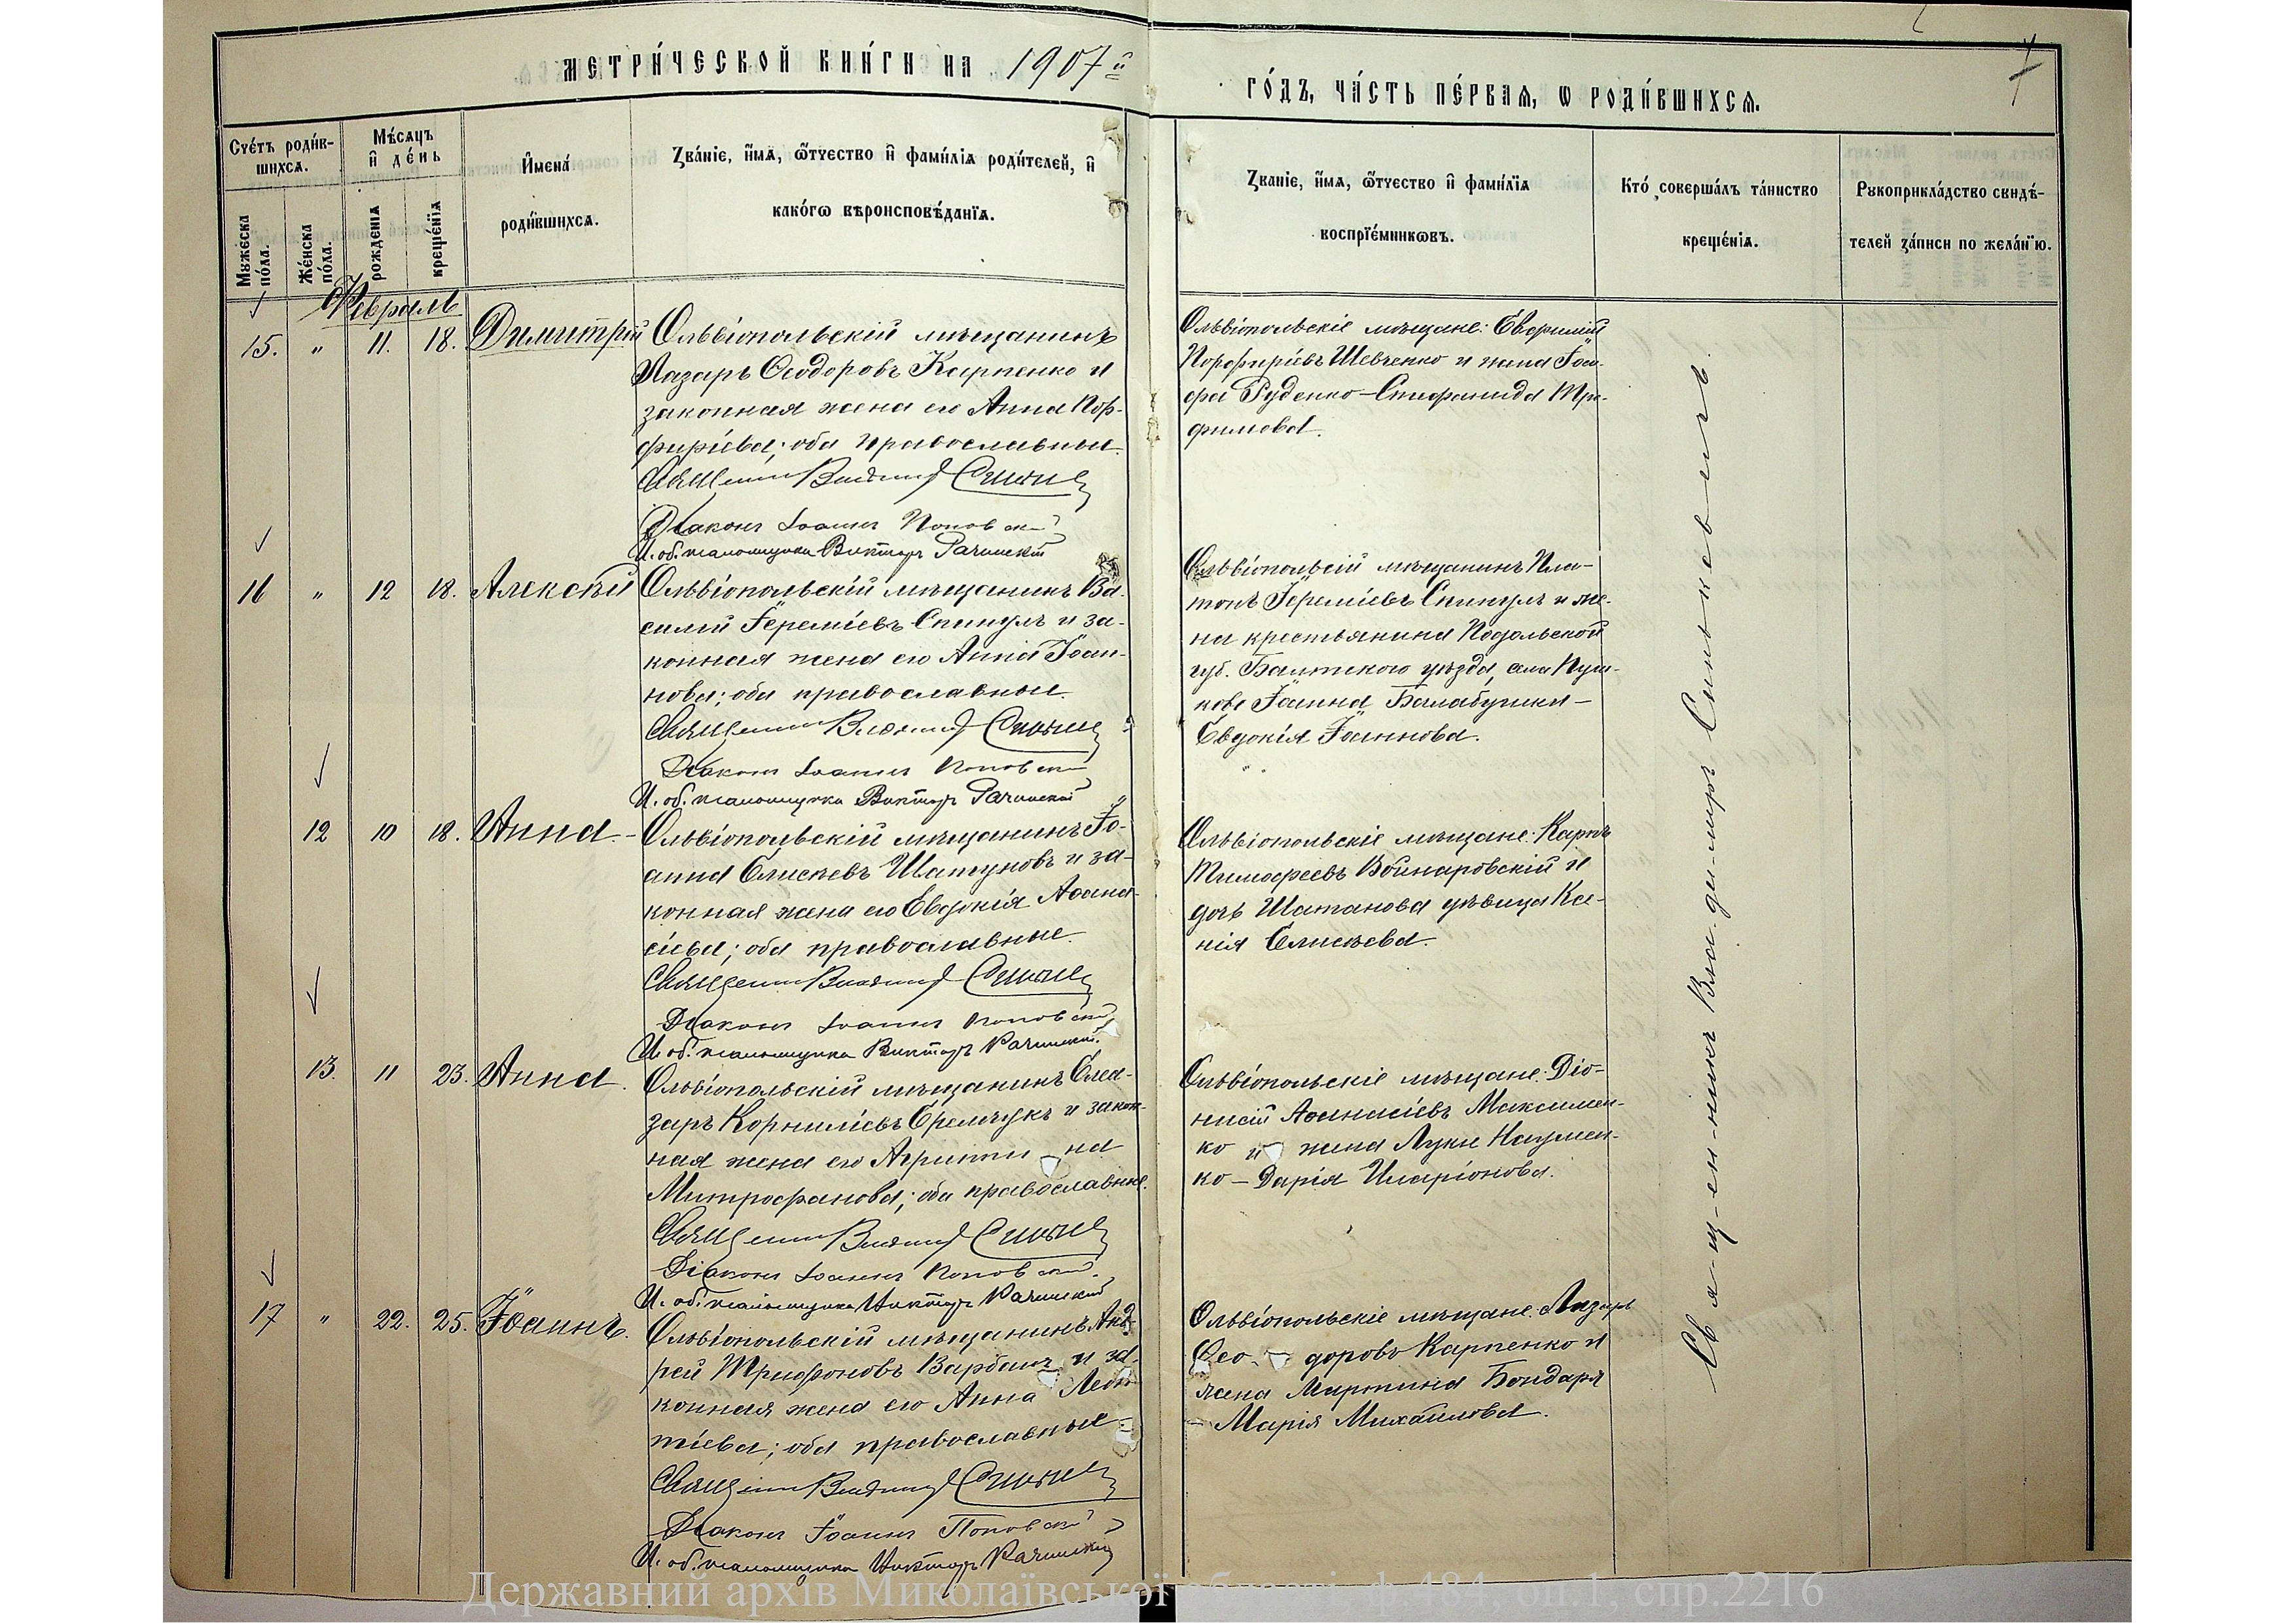 МЕТРИ́ЧЕСКОЙ КНИ́ГИ НА 1907й
ГО́ДЪ, ЧА́СТЬ ПЕ́РВАѦ, Ѡ РОДИ́ВШИХСѦ.
Сче́тъ роди́в-
шихсѧ.
Му́жеска
по́ла.
Же́нска
по́ла.
Мѣ́сѧцъ
и҆ де́нь
рожде́нїѧ
креще́нїѧ
И҆мена́
роди́вшихсѧ.
Зва́нїе, и҆́мѧ, ѻ҆́тчество и҆ фами́лїѧ роди́телей, и҆
како́гѡ вѣроисповѣ́данїѧ.
Зва́нїе, и҆́мѧ, ѻ҆́тчество и҆ фами́лїѧ
воспрїе́мникѡвъ.
Кто̀ соверша́лъ та́инство
креще́нїѧ.
Рꙋкоприкла́дство свидѣ́-
телей за́писи по жела́нїю.
Февраль
15. " 11. 18. Димитрій
Ольвіопольскій мѣщанинъ
Лазарь Ѳеодоровъ Карпенко и
законная жена его Анна Пор-
фиріева; оба православные.
Священникъ Владимиръ
Діаконъ Іоаннъ Поповскій
И. об. псаломщика Викторъ Рачинскій
Ольвіопольскіе мѣщане: Евфимій
Порфиріевъ Шевченко и жена Іоси-
фа Руденко – Стефанида Тро-
фимова.
16 " 12 18. Алексѣй
Ольвіопольскій мѣщанинъ Ва-
силій Іереміевъ Спинулъ и за-
конная жена его Анна Іоан-
нова; оба православные.
Священникъ Владимиръ
Діаконъ Іоаннъ Поповскій
И. об. псаломщика Викторъ Рачинскій
Ольвіопольсій мѣщанинъ Пла-
тонъ Іереміевъ Спинулъ и же-
на крестьянина Подольской
губ. Балтского уѣзда, села Пуш-
кова Іоанна Балабушки –
Евдокія Іоаннова.
12 10 18. Анна.
Ольвіопольскій мѣщанинъ Іо-
анна Елисѣевъ Шатуновъ и за-
конная жена его Евдокія Аѳана-
сіева; оба православные.
Священникъ Владимиръ
Діаконъ Іоаннъ Поповскій
И. об. псаломщика Викторъ Рачинскій
Ольвіопольскіе мѣщане: Карпъ
Тимофеевъ Войнаровскій и
дочь Шатанова дѣвица Ксе-
нія Елисѣева.
13. 11 23. Анна.
Ольвіопольскій мѣщанинъ Елеа-
заръ Корниліевъ Еремчукъ и закон-
ная жена его Агриппи на
Митрофанова; оба православные.
Священникъ Владимиръ
Діаконъ Іоаннъ Поповскій
И. об. псаломщика Викторъ Рачинскій
Ольвіопольскіе мѣщане: Діо-
нисій Аѳанасіевъ Максимен-
ко и жена Луки Наумен-
ко – Дарія Иларіонова.
17 " 22. 25. Іоаннъ.
Ольвіопольскій мѣщанинъ Анд-
рей Трифоновъ Варбанъ и за-
конная жена его Анна Леон-
тіева; оба православные.
Священникъ Владимиръ
Діаконъ Іоаннъ Поповскій
И. об. псаломщика Викторъ Рачинскій
Ольвіопольскіе мѣщане: Лазарь
Ѳео доровъ Карпенко и
жена Мартина Бондаря
– Марія Михайлова.
Свя-щ-ен-никъ Вла-ди-миръ
Державний архів Миколаївської області, ф.484, оп.1, спр.2216